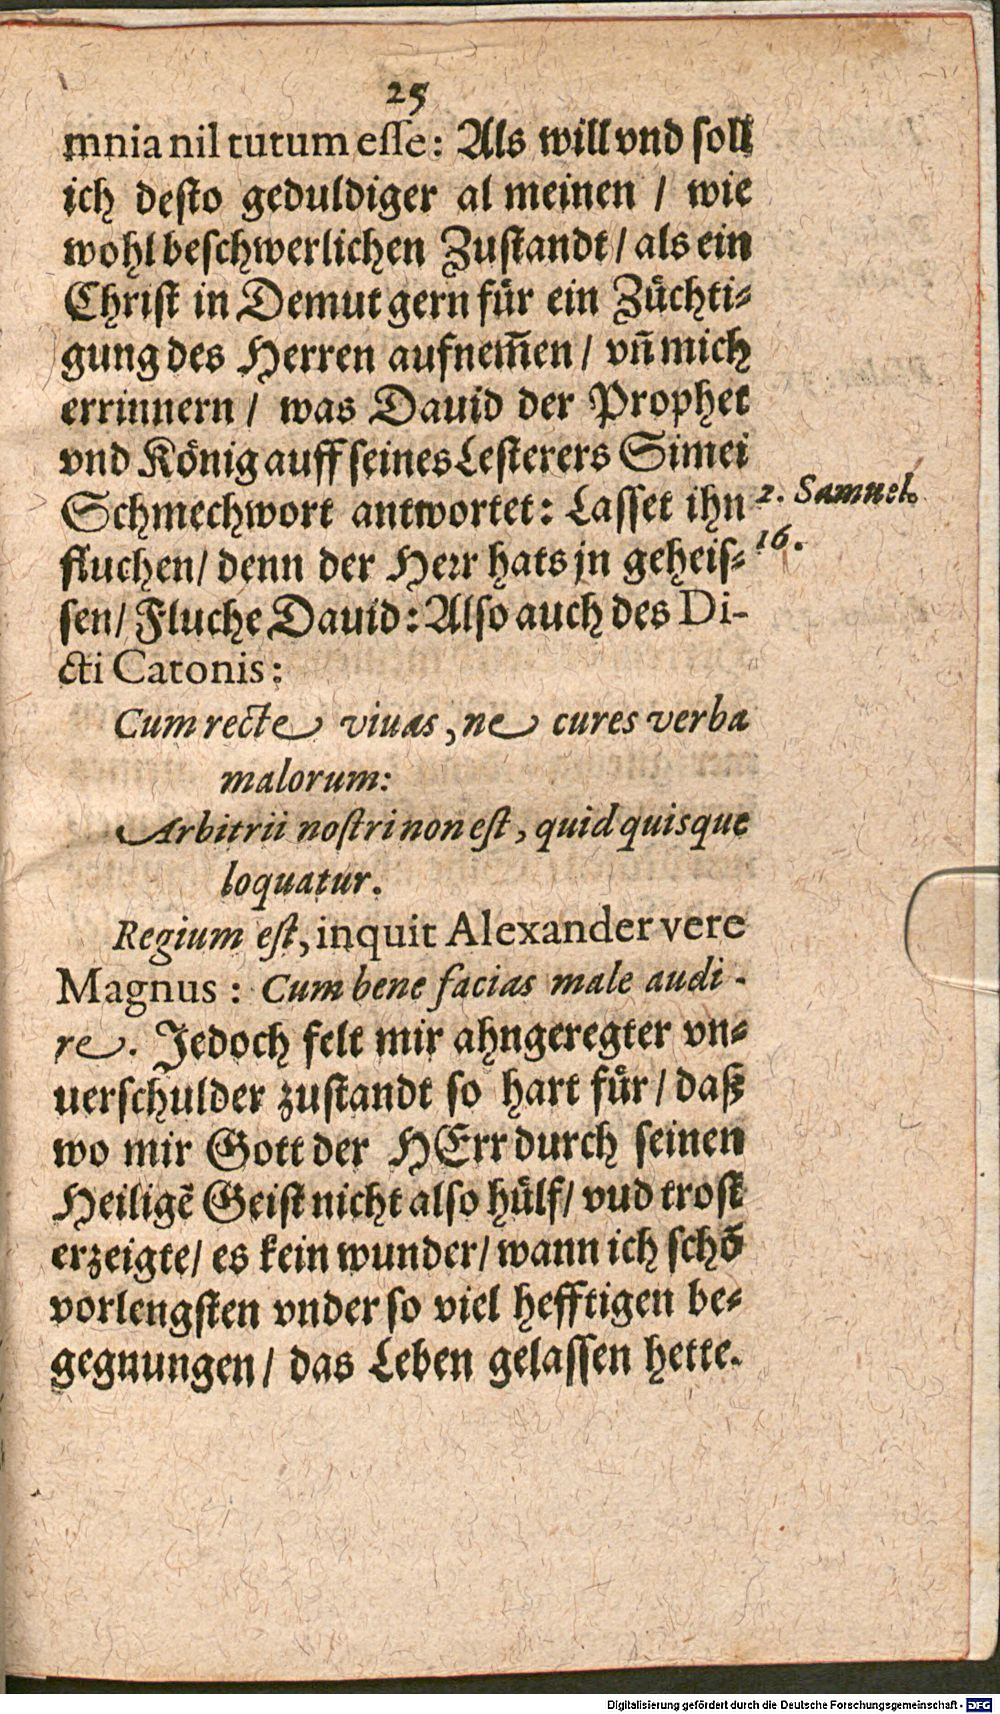 25
mnia nil tutum esse: Als will vnd soll
ich desto geduldiger al meinen / wie
wohl beschwerlichen Zustandt / als ein
Christ in Demut gern für ein Züchti-
gung des Herren aufnem̅en / vn̅ mich
errinnern / was Dauid der Prophet
vnd König auff seines Lesterers Simei
Schmechwort antwortet: Lasset ihn
fluchen / denn der Herr hats jn geheis-
sen / Fluche Dauid: Also auch des Di-
cti Catonis:
2. Samuel.
16.
Cum recte viuas, ne cures verba
malorum:
Arbitrii nostri non est, quid quisque
loquatur.
Regium est, inquit Alexander vere
Magnus: Cum bene facias male audi-
re. Jedoch felt mir ahngeregter vn-
uerschulder zustandt so hart für / daß
wo mir Gott der HErr durch seinen
Heilige̅ Geist nicht also hülf / vud trost
erzeigte / es kein wunder / wann ich scho̅
vorlengsten vnder so viel hefftigen be-
gegnungen / das Leben gelassen hette.
Digitalisierung gefördert durch die Deutsche Forschungsgemeinschaft - DFG